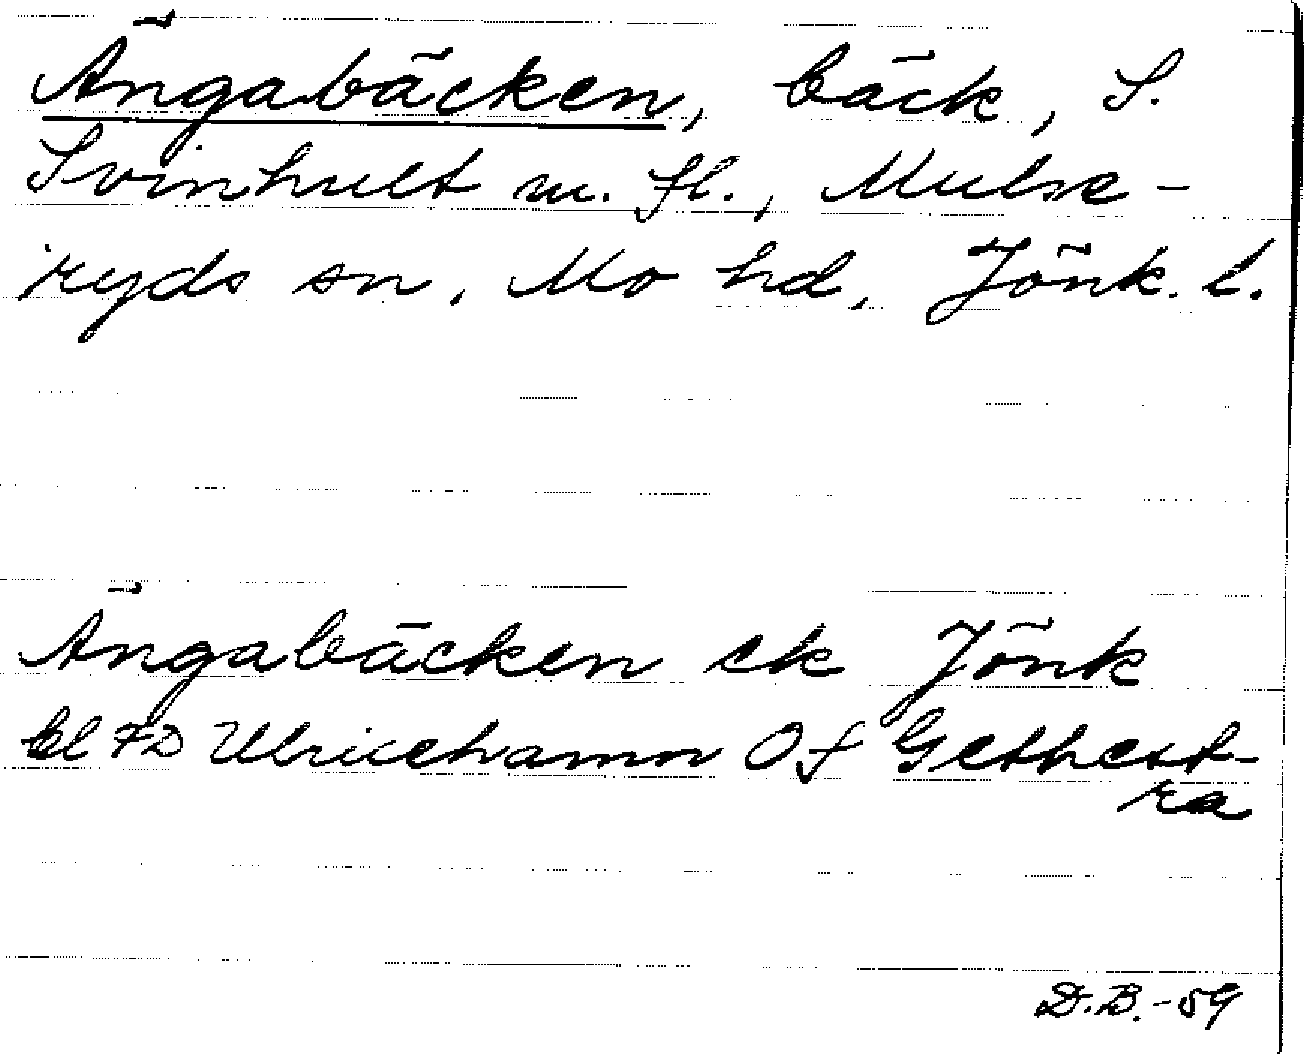 Ängabäcken, bäck, S.
Svinhult m. fl., Mulse-
ryds sn. Mo hd, Jönk. l.
Ängabäcken ek Jönk
bl 7D Ulricehamn Of Gethest-
ra
D.B.-59